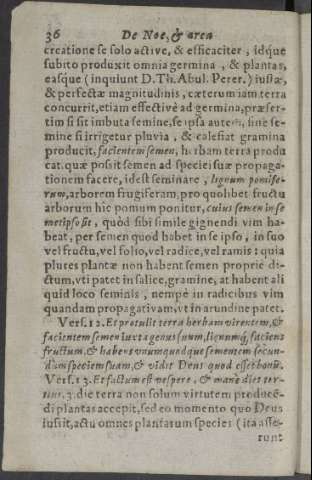 36 De Noe, & arca
creatione se solo active, & efficaciter, idq́ue
subito produxit omnia germina, & plantas,
easque (inquiunt D. Th. Abul. Perer.) iustæ,
& perfectæ magnitudinis, cæterum iam terra
concurrit, etiam effectivè ad germina, præser-
tim si sit imbuta semine, se ipsa autem, sine se-
mine si irrigetur pluvia, & calefiat gramina
producit, facientem semen, herbam terra produ
cat. quæ possit semen ad speciei suæ propaga-
tionem facere, idest seminare, lignum pomife-
rum, arborem frugiferam, pro quolibet fructu
arborum hic pomum ponitur, cuius semen in se
metipso sit, quòd sibi simile gignendi vim ha-
beat, per semen quod habet in se ipso, in suo
vel fructu, vel folio, vel radice, vel ramis: quia
plures plantæ non habent semen propriè di-
ctum, vti patet in salice, gramine, at habent ali
quid loco seminis, nempè in radicibus vim
quandam propagativam, vt in arundine patet.
Vers. 12. Et protulit terra herbam virentem, &
facientem semen iuxta genus suum, lignumq́; faciens
fructum, & habens vnumquodque sementem secun-
dùm speciem suam, & vidit Deus quod esset bonũ.
Vers. 13. Et factum est vespere, & manè dies ter-
tius. 3. die terra non solum virtutem producẽ-
di plantas accepit, sed eo momento quo Deus
iussit, actu omnes plantarum species (ita asse-
runt